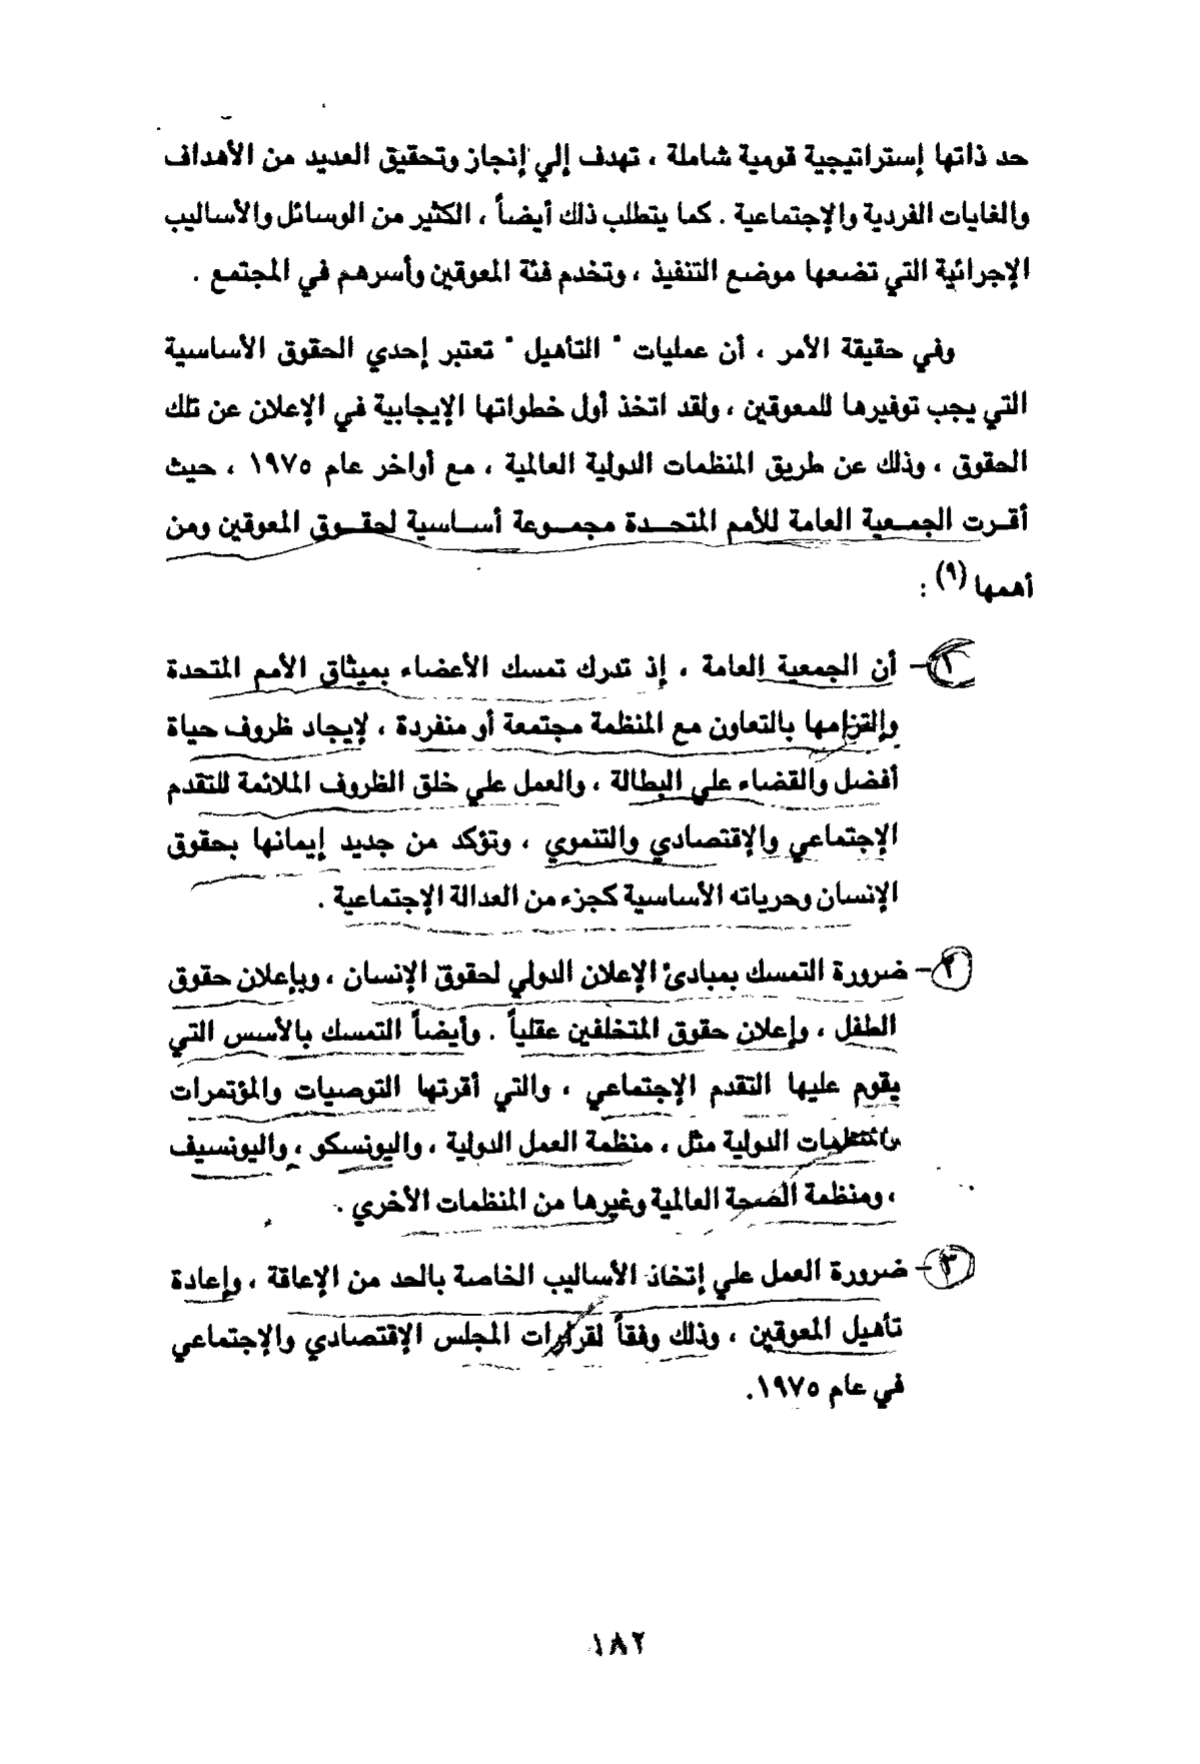 حد ذاتها إستراتيجية قومية شاملة ، تهدف إلي إنجاز وتحقيق العديد من الأهداف
والغايات الفردية والإجتماعية . كما يتطلب ذلك أيضاً ، الكثير من الوسائل والأساليب
الإجرائية التي تضعها موضع التنفيذ ، وتخدم فئة المعوقين وأسرهم في المجتمع .
وفي حقيقة الأمر ، أن عمليات " التأهيل " تعتبر إحدي الحقوق الأساسية
التي يجب توفيرها للمعوقين ، ولقد اتخذ أول خطواتها الإيجابية في الإعلان عن تلك
الحقوق ، وذلك عن طريق المنظمات الدولية العالمية ، مع أواخر عام ١٩٧٥ ، حيث
أقرت الجمعية العامة للأمم المتحدة مجموعة أساسية لحقوق المعوقين ومن
أهمها (٩) :
١- أن الجمعية العامة ، إذ تدرك تمسك الأعضاء بميثاق الأمم المتحدة
وإلتزامها بالتعاون مع المنظمة مجتمعة أو منفردة ، لإيجاد ظروف حياة
أفضل والقضاء علي البطالة ، والعمل علي خلق الظروف الملائمة للتقدم
الإجتماعي والإقتصادي والتنموي ، وتؤكد من جديد إيمانها بحقوق
الإنسان وحرياته الأساسية كجزء من العدالة الإجتماعية .
٢- ضرورة التمسك بمبادئ الإعلان الدولي لحقوق الإنسان ، وبإعلان حقوق
الطفل ، وإعلان حقوق المتخلفين عقلياً . وأيضاً التمسك بالأسس التي
يقوم عليها التقدم الإجتماعي ، والتي أقرتها التوصيات والمؤتمرات
والمنظمات الدولية مثل ، منظمة العمل الدولية ، واليونسكو ، واليونسيف
، ومنظمة الصحة العالمية وغيرها من المنظمات الأخري .
٣- ضرورة العمل علي إتخاذ الأساليب الخاصة بالحد من الإعاقة ، وإعادة
تأهيل المعوقين ، وذلك وفقاً لقرارات المجلس الإقتصادي والإجتماعي
في عام ١٩٧٥.
١٨٢